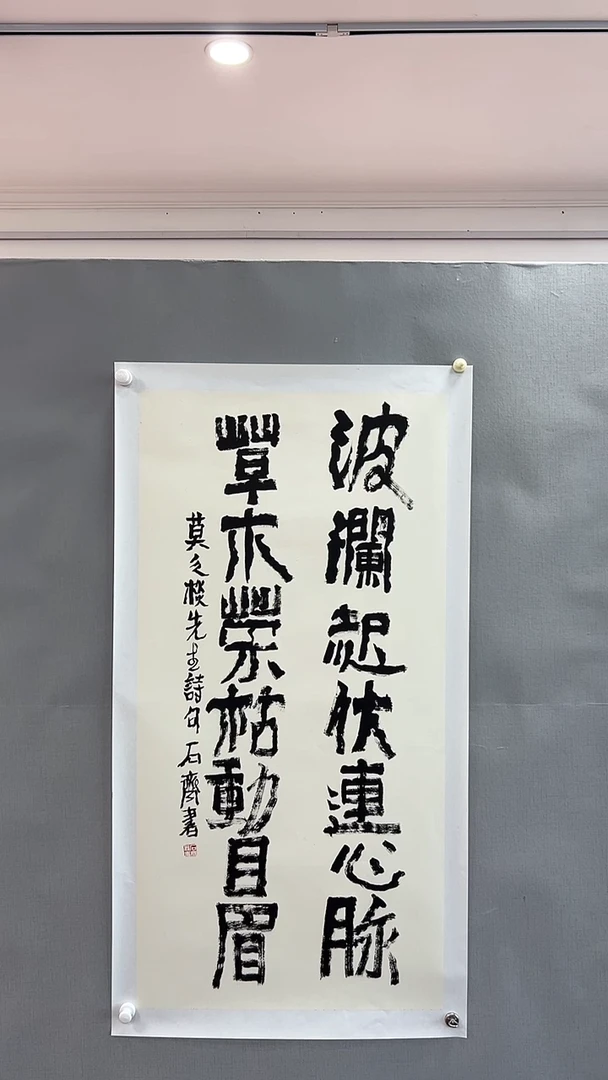 波瀾起伏連心脉
草木榮枯動目眉
莫之棪先生詩句 石齊書